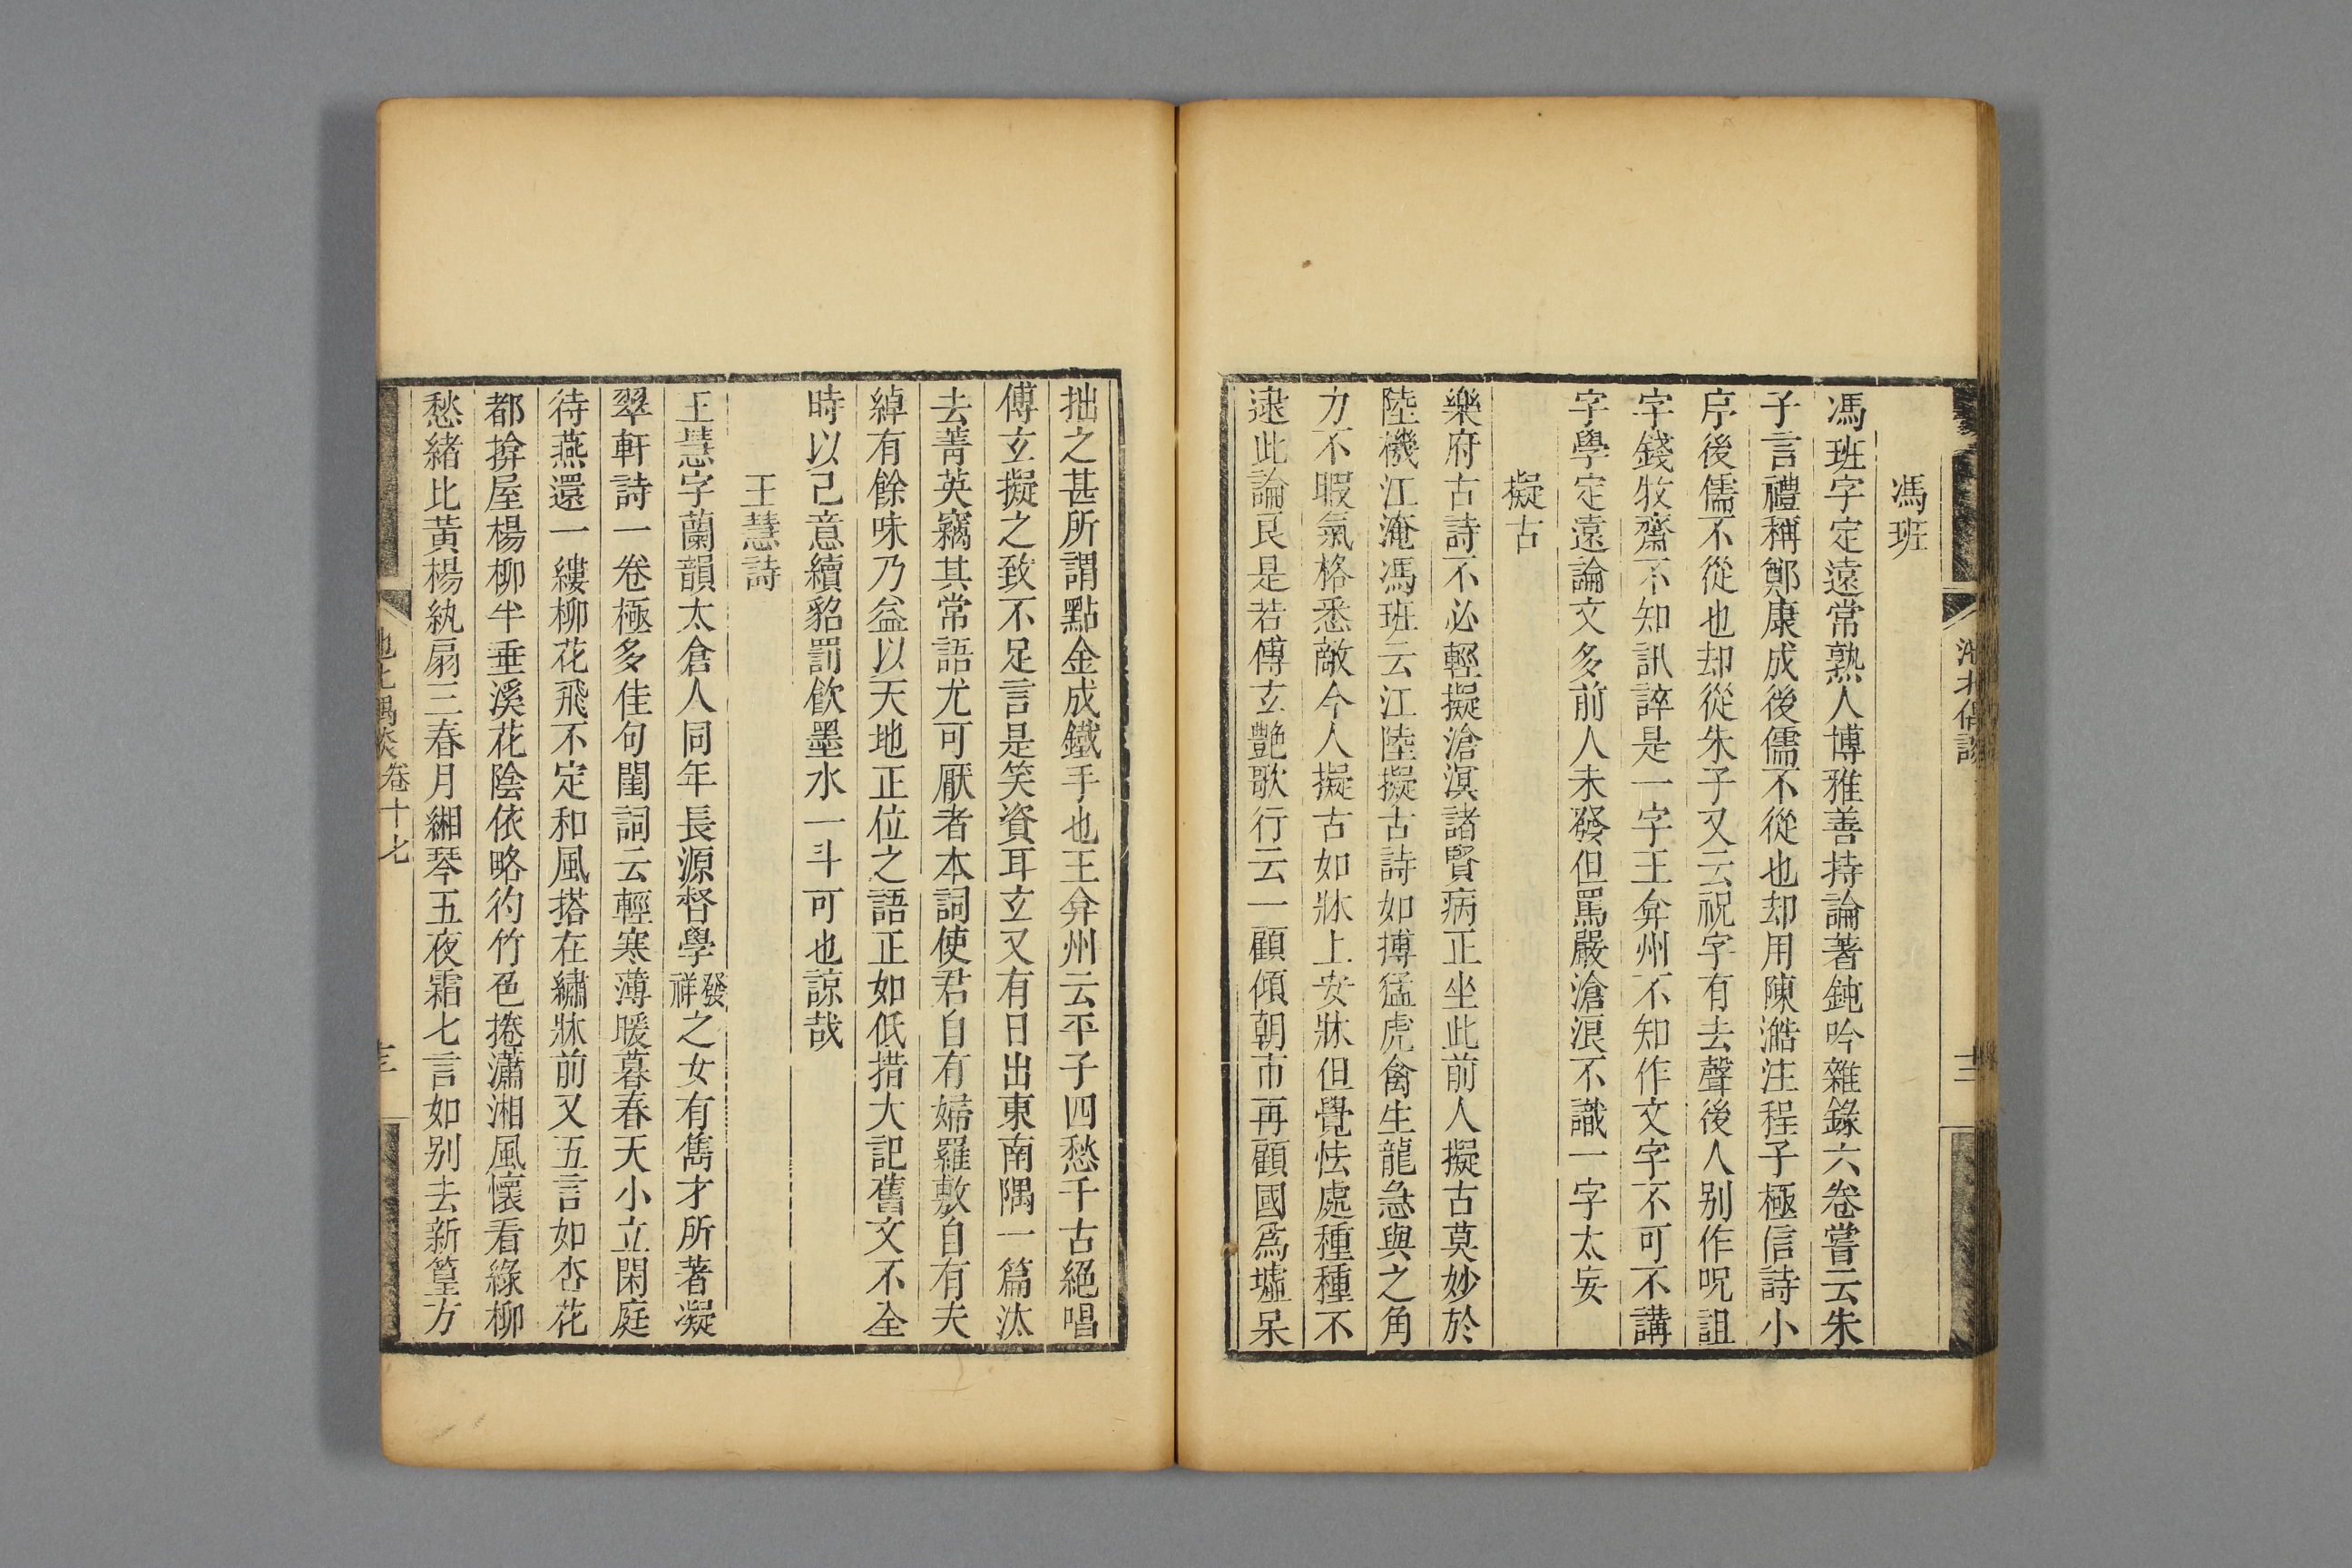 馮班
馮班字定遠常熟人博雅善持論著鈍吟雜錄六卷嘗云朱
子言禮稱鄭康成後儒不從也却用陳澔注程子極信詩小
序後儒不從也却從朱子又云祝字有去聲後人别作呪詛
字錢牧齋不知訊誶是一字王弇州不知作文字不可不講
字學定遠論文多前人未發但罵嚴滄浪不識一字太妄
擬古
樂府古詩不必輕擬滄溟諸賢病正坐此前人擬古莫妙於
陸機江淹馮班云江陸擬古詩如搏猛虎禽生龍急與之角
力不暇氣格悉敵今人擬古如牀上安牀但覺怯處種種不
逮此論良是若傅玄艶歌行云一顧傾朝市再顧國爲墟呆
拙之甚所謂點金成鐵手也王弇州云平子四愁千古絕唱
傅玄擬之致不足言是笑資耳玄又有日出東南隅一篇汰
去菁英竊其常語尤可厭者本詞使君自有婦羅敷自有夫
綽有餘味乃益以天地正位之語正如低措大記舊文不全
時以己意續貂罰飲墨水一斗可也諒哉
王慧詩
王慧字蘭韻太倉人同年長源督學發祥之女有雋才所著凝
翠軒詩一卷極多佳句閨詞云輕寒薄暖暮春天小立閑庭
待燕還一縷柳花飛不定和風搭在繡牀前又五言如杏花
都揜屋楊柳半垂溪花陰依略彴竹色捲瀟湘風懷看綠柳
愁緒比黃楊紈扇三春月緗琴五夜霜七言如别去新篁方
池北偶談 卷十七